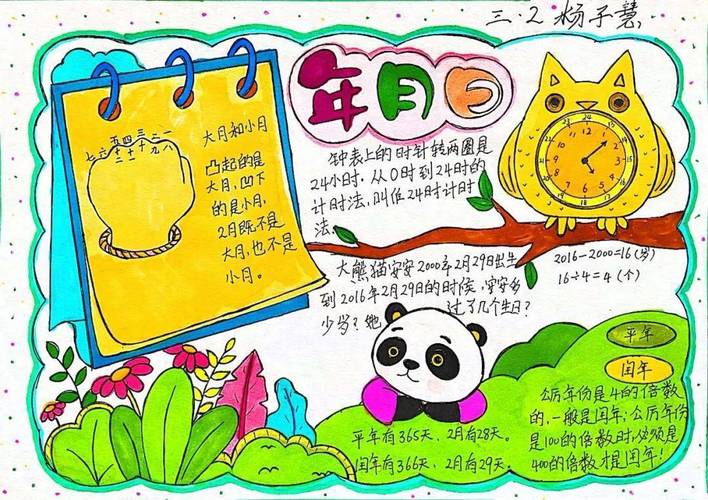 三.2 杨子慧
年月日
七 五 四 三 一
六 十 十 三 八
二 一 十 九
大月和小月
凸起的是
大月，凹下
的是小月，
2月既不是
大月，也不是
小月。
钟表上的时针转两圈是
24小时．从0时到24时的
计时法，叫作24时计时
法。
大熊猫安安2000年2月29日出生
到2016年2月29日的时候，安安多
少岁？她过了几个生日？
2016-2000=16(岁)
16÷4=4(个)
平年
闰年
公历年份是4的倍数
的，一般是闰年；公历年份
是100的倍数时，必须是
400的倍数才是闰年！
平年有365天、2月有28天。
闰年有366天、2月有29天。